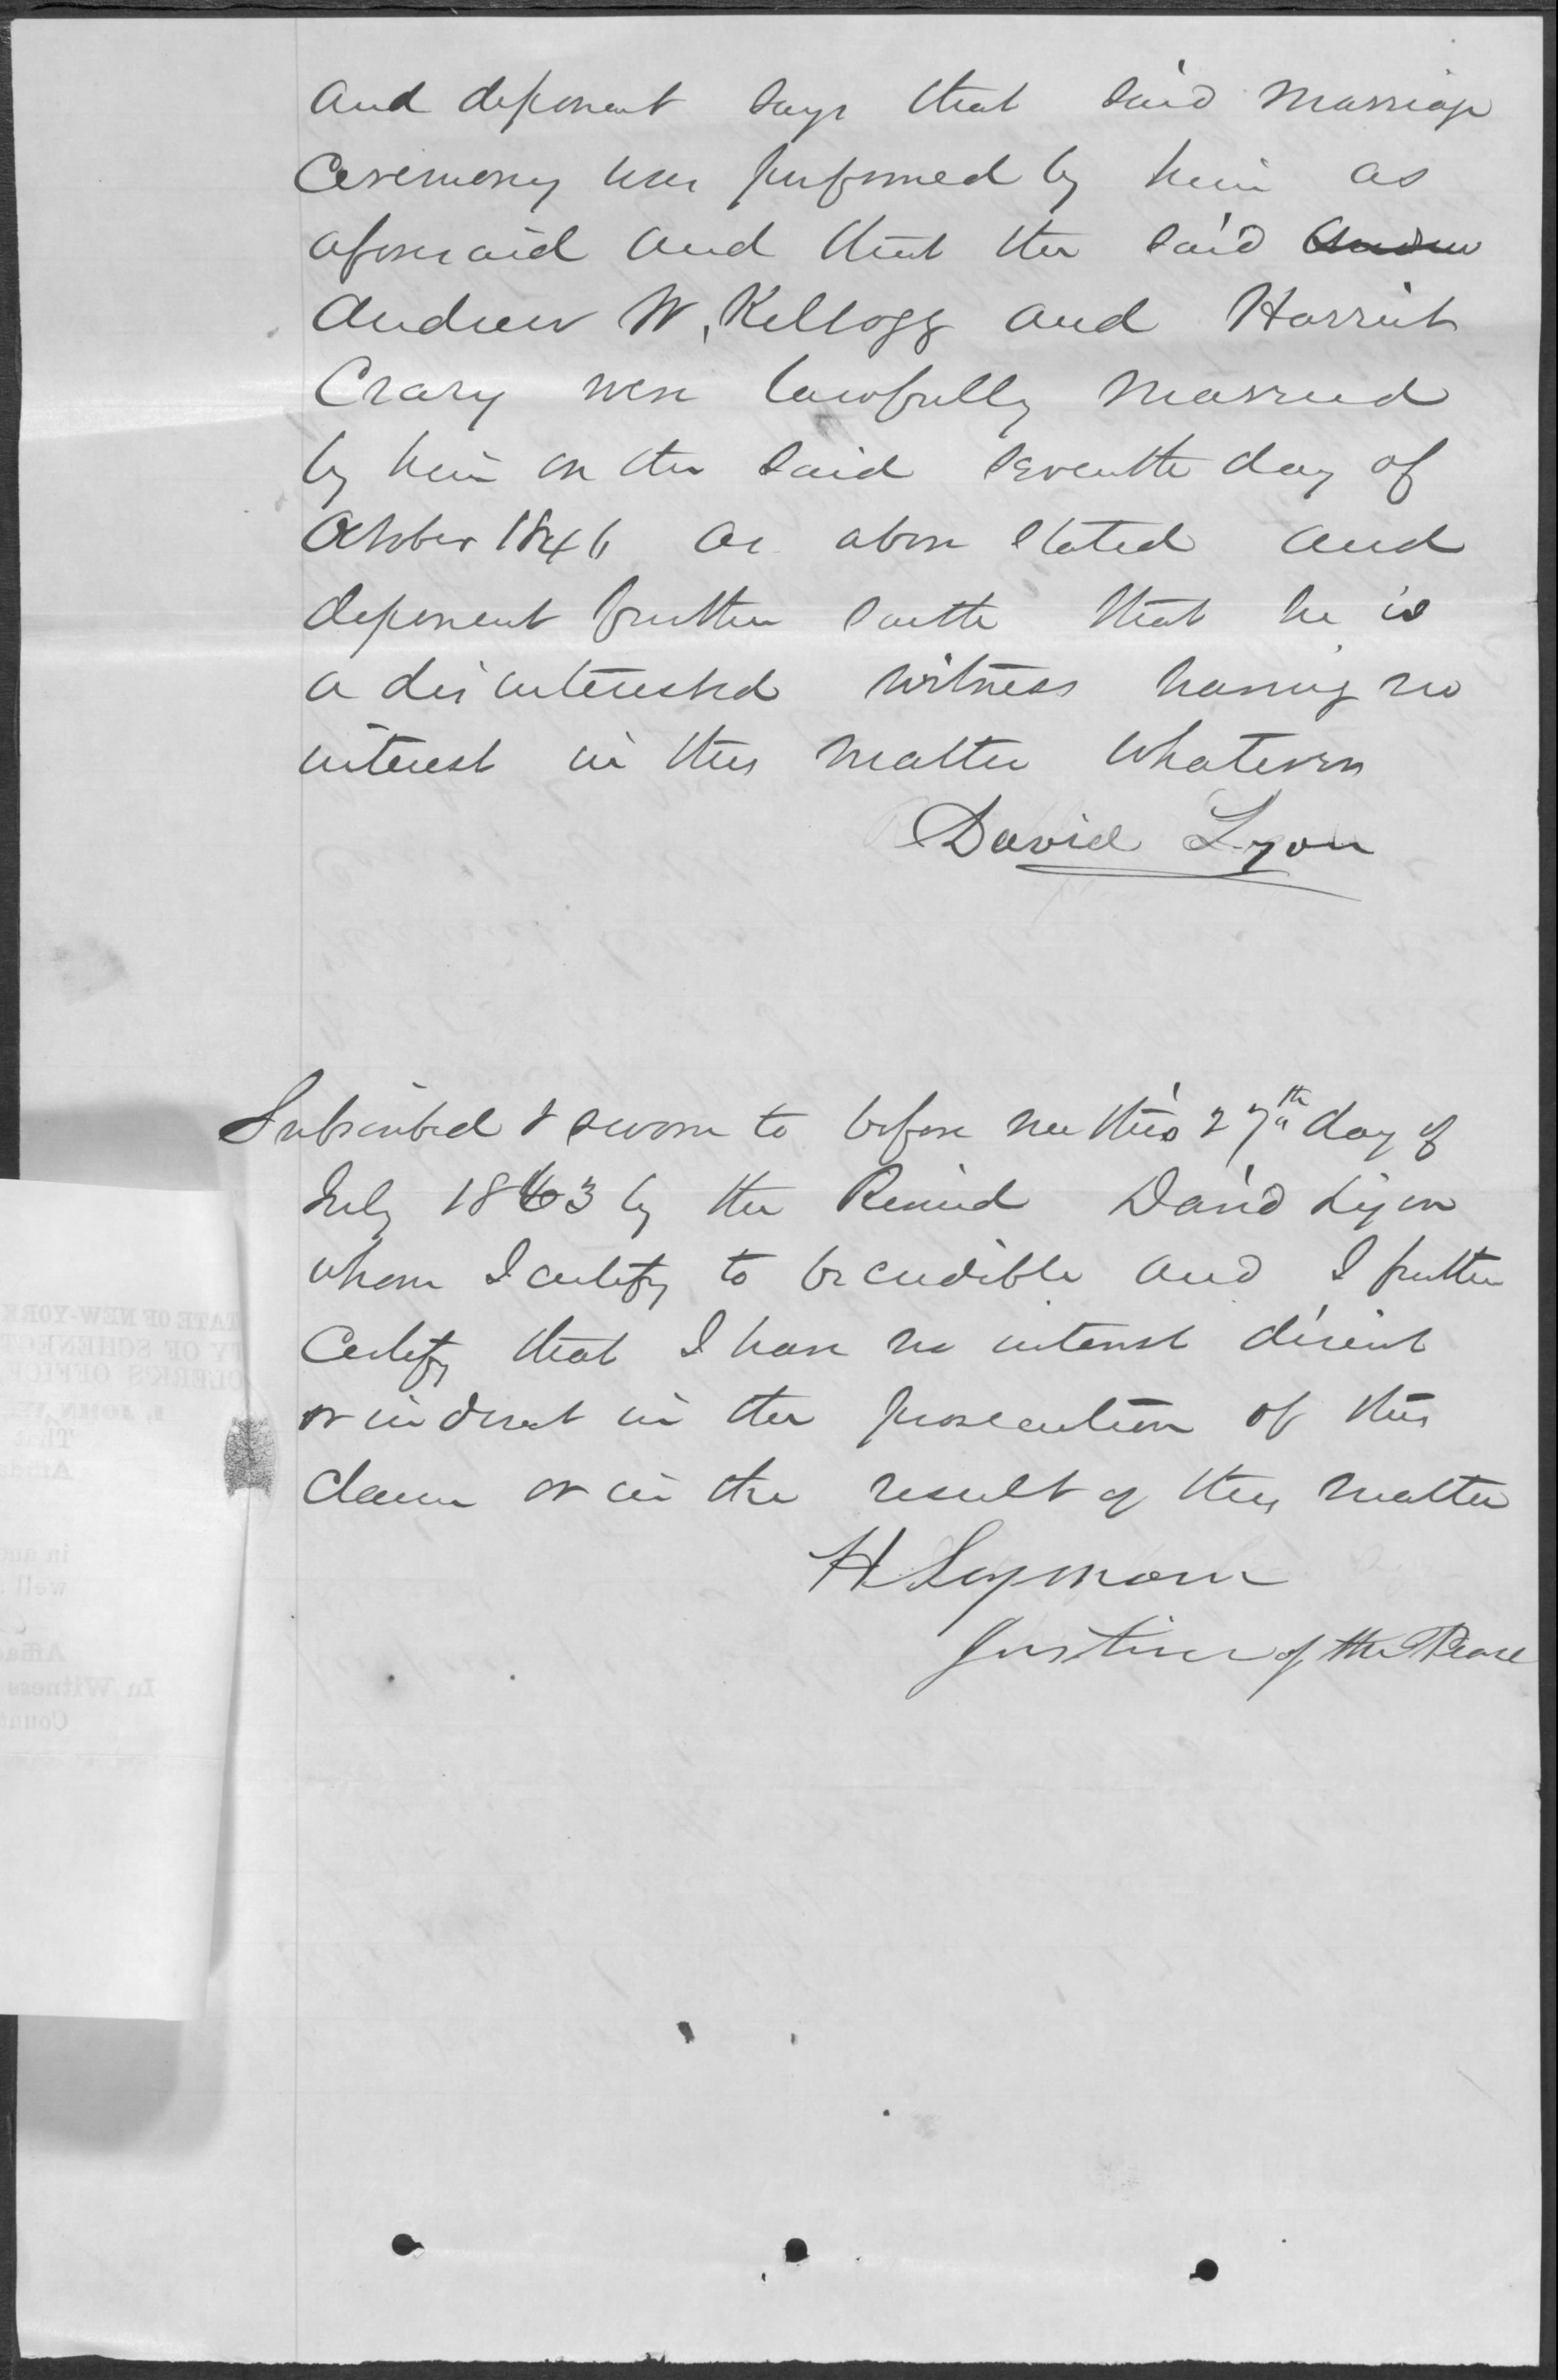 and deponent says that said marriage
Ceremony was performed by him as
aforesaid and that the said Andrew
Andrew W. Kellogg and Harriet
Crary were lawfully married
by him on the said seventh day of
October 1846 as above stated and
deponent further saith that he is
a disinterested witness having no
interest in this matter whatever
David Lyon
Subscribed & sworn to before me this 27th day of
July 1863 by the Revired David Lyon
whom I certify to be credible and I further
Certify that I have no interest direct
or indirect in the prosecution of this
claim or in the result of this matter
H Seymour
Justice of the Peace
TATE OF NEW-YORK
TY OF SCHENECT
CLERK'S OFFICE
I, JOHN
In Witness
Coun